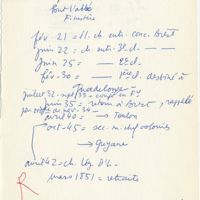 Pont l'Abbé
Finistère
fév. 21 = ch. enti. conc. Brest
juin 22 = ch. enti. 3e cl —
juin 25 = — 2e cl.
fév. 30 = — 1ère cl. destiné à
Guadeloupe
juillet 32 - sept 33 = congé en Fr
juin 35 = retour à Brest, rappelé
avril 40 = — Toulon
oct. 45 = sec. m. chf colonies
→ Guyane
avril 42 = ch. Lég. d'h.
mars 1851 = retraite
R